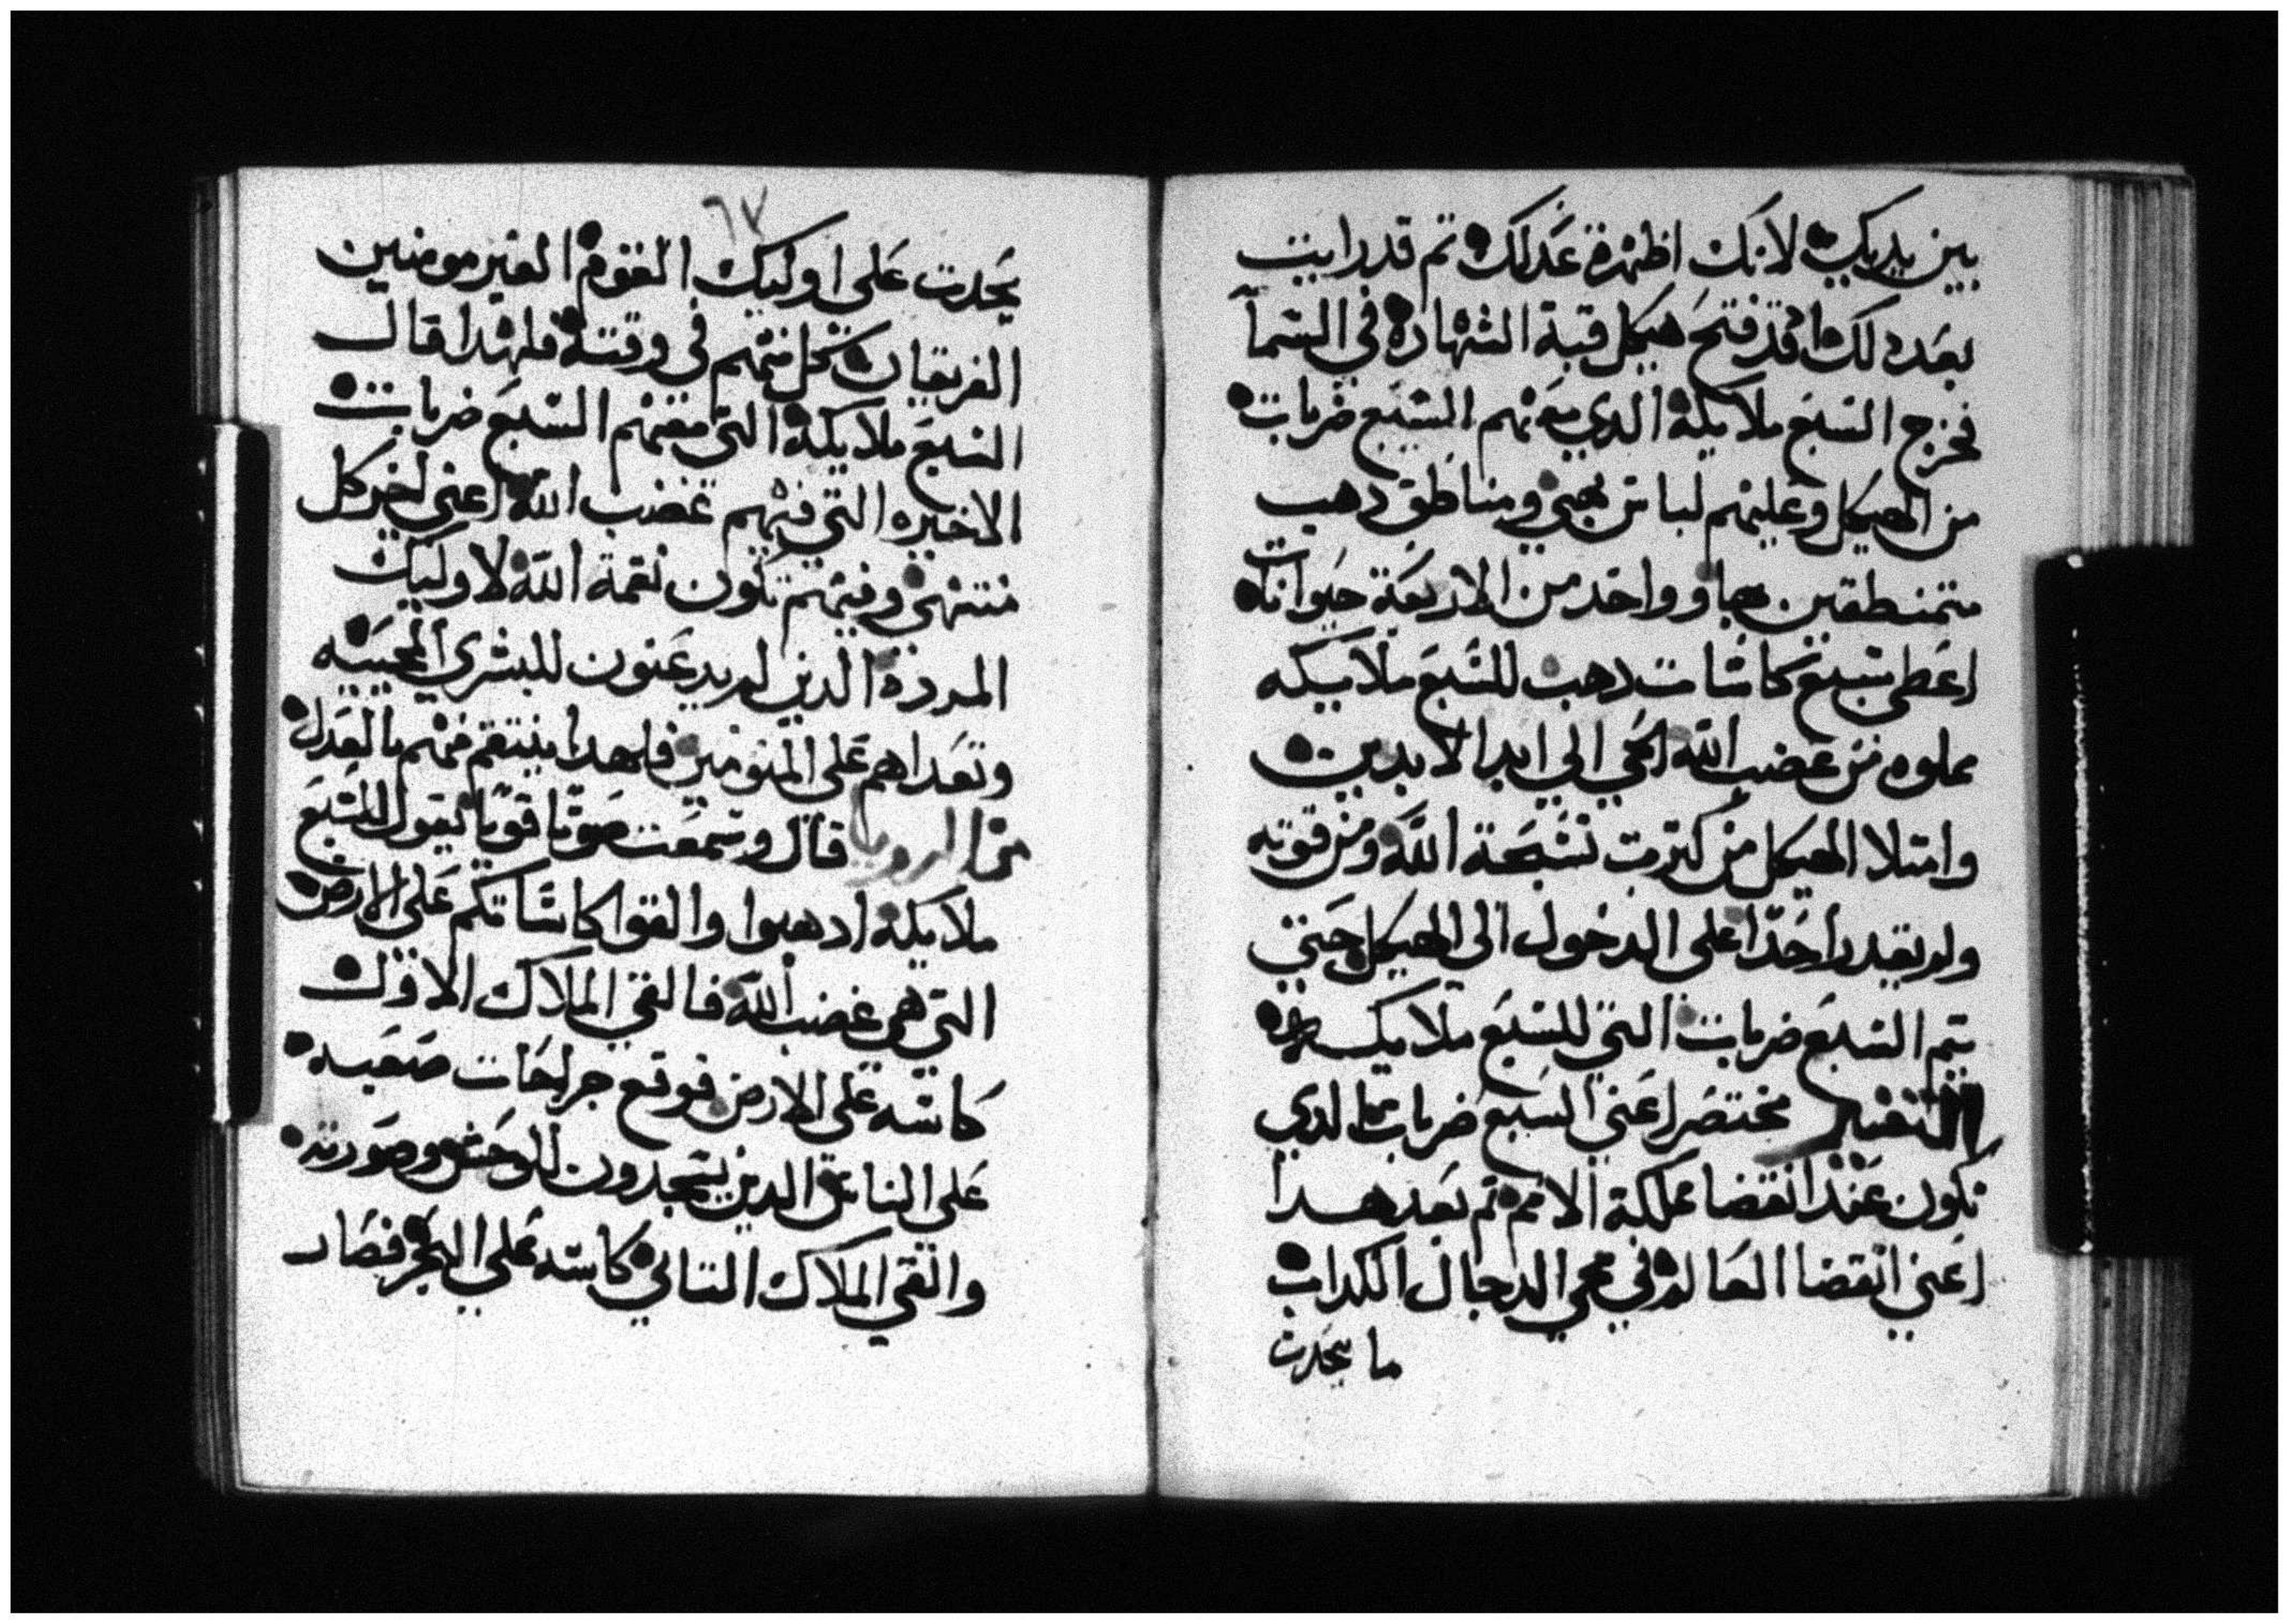 بين يديك لانك اظهرة عدلك تم قد رايت
بعد دلك قد فتح هيكل قبة الشهاده في السما
فخرج السبع ملايكة الدي معهم السبع ضربات
من الهيكل وعليهم لباس بهي ومناطق دهب
متمنطقين بها وواحد من الاربعة حيوانات
اعطي سبع كاسات دهب للسبع ملايكه
مملوه من غضب الله الحي الي ابد الابدين
وامتلا الهيكل من كترت تسبحة الله ومن قوته
ولم يقدر احدا على الدخول الى الهيكل حتي
يتم السبع ضربات التي للسبع ملايكه
التفسير مختصر اعني السبع ضربات الدي
تكون عند انقضا مملكة الامم تم بعد هدا
اعني انقضا العالم في مجي الدجال الكداب
ما يحدت
٦٧
يحدت على اوليك القوم الغير مومنين
الفريقان كل منهم في وقته فلهدا قال
السبع ملايكة التي معهم السبع ضربات
الاخيره التي فيهم غضب الله اعني اخير كل
منتهى وفيهم تكون نقمة الله لاوليك
المردة الدين لم يدعنون للبشري المحييه
وتعداهم على المومنين فلهدا ينتقم منهم بالعدل
من الرويا قال وسمعت صوتا قويا يقول للسبع
ملايكة ادهبوا والقوا كاساتكم على الارض
التي هي غضب الله فالقي الملاك الاول
كاسه على الارض فوقع جراحات صعبه
على الناس الدين يسجدون للوحش وصورته
والقي الملاك التاني كاسه علي البحر فصار